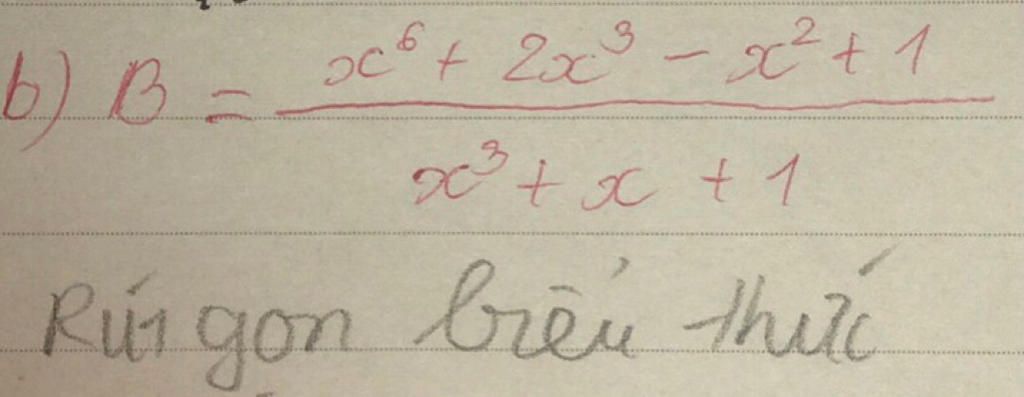 b) B = \frac{x^6 + 2x^3 - x^2 + 1}{x^3 + x + 1}
Rút gọn biểu thức